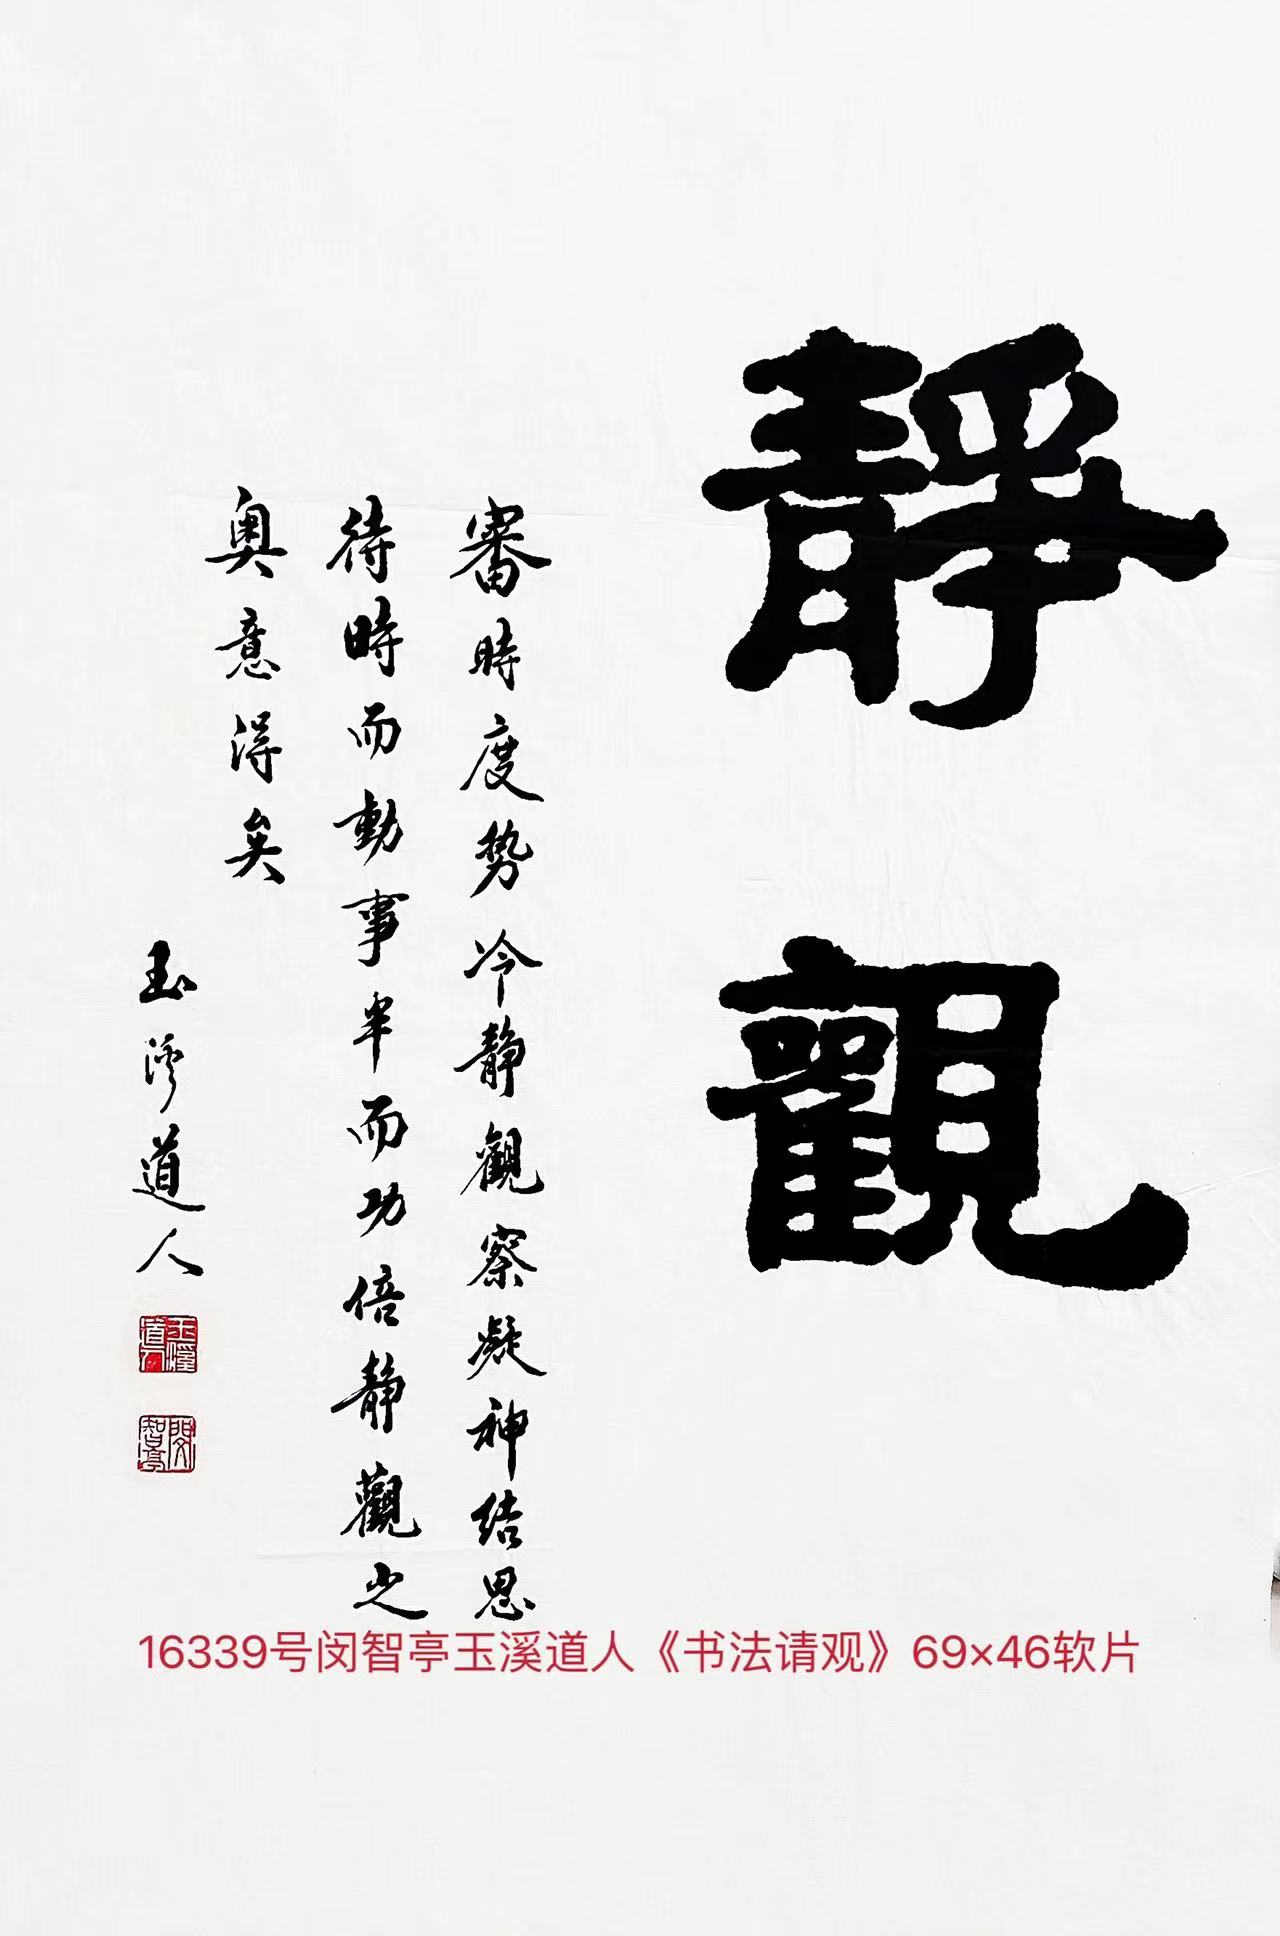 靜觀
審時度势冷静觀察凝神结思
待時而動事半而功倍静觀之
奥意得矣
玉溪道人
玉溪道人
閔智亭
16339号闵智亭玉溪道人《书法请观》69×46软片